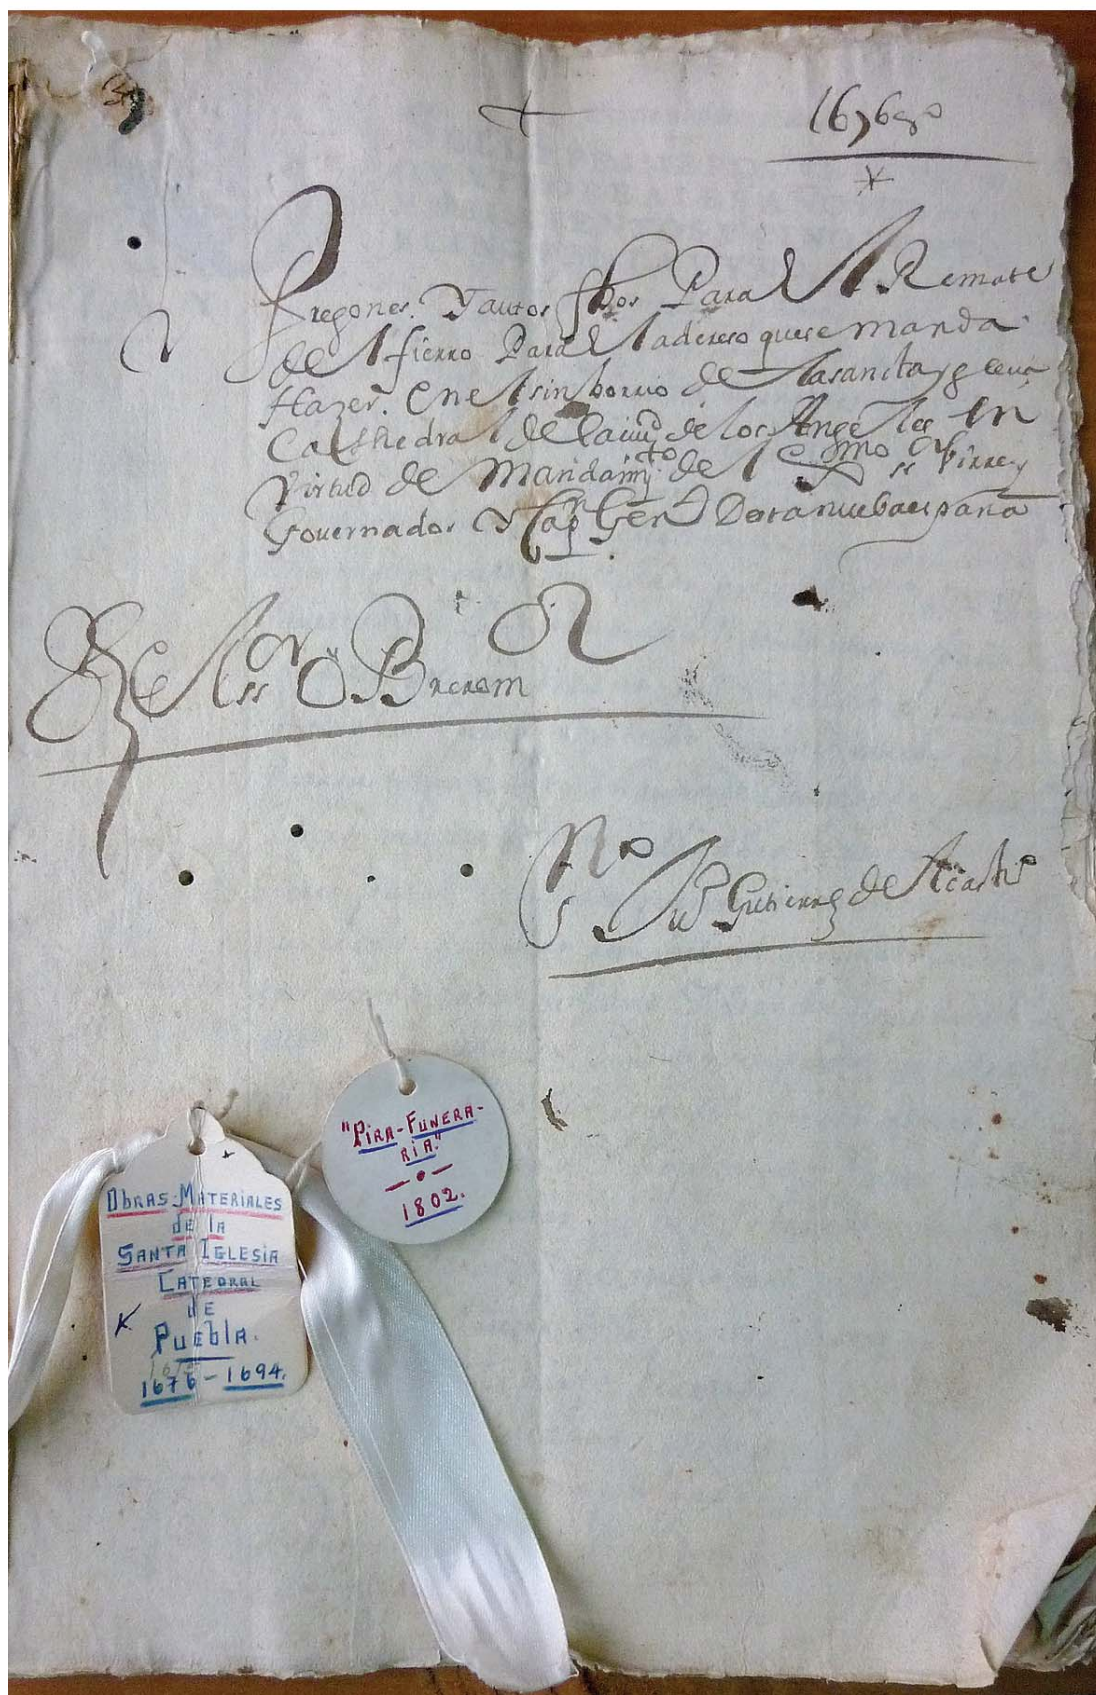 1676 as
Pregones. Y autos fhos Para el Remate
de el fierro Para el adereso que se manda
Hazer. en el sinborrio de la santa yglecia
Cathedral de la ciud de los Angeles en
Virtud de Mandamto de el Exmo ssor Virrey
Governador Y Capn Genl Desta nueba españa
Juez
el ssor Obrerom
No
Juo Gutierrez de
"Pira-Funera-
ria."
1802.
Obras-Materiales
de la
Santa Iglesia
Catedral
de
Puebla.
1676-1694.